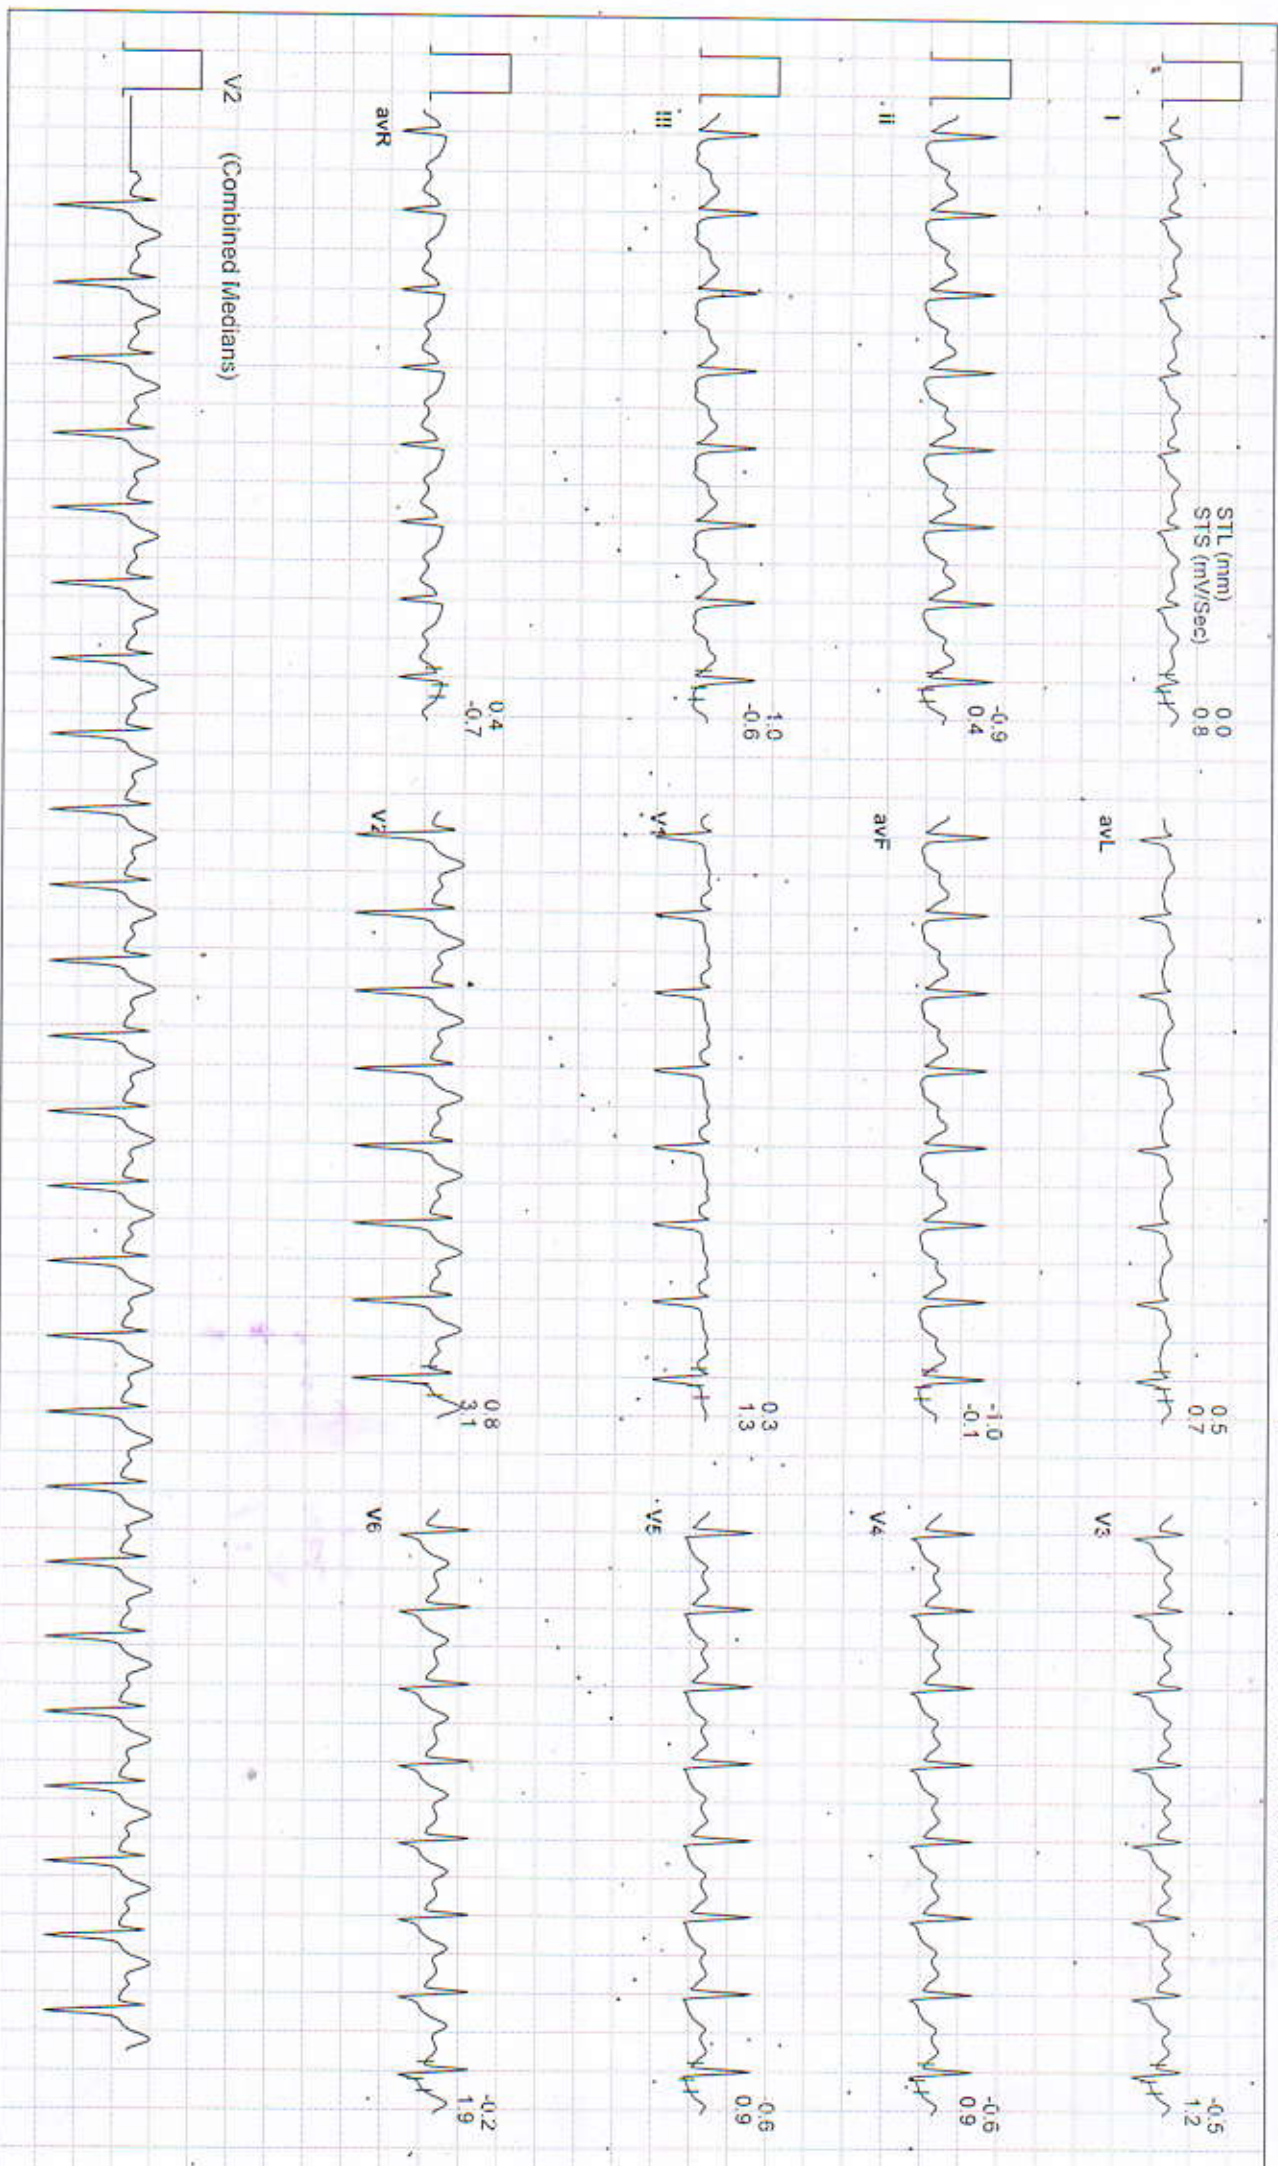 I
STL (mm) 0.0
STS (mV/Sec) 0.8
avL
0.5
0.7
V3
-0.5
1.2
ii
-0.9
0.4
avF
-1.0
-0.1
V4
-0.6
0.9
iii
1.0
-0.6
V1
0.3
1.3
V5
-0.6
0.9
avR
0.4
-0.7
V2
0.8
3.1
V6
-0.2
1.9
V2 (Combined Medians)